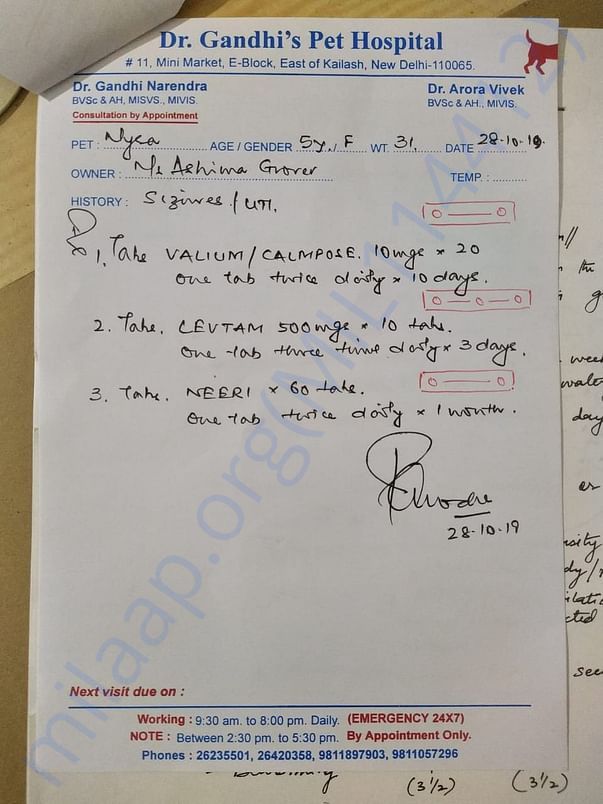 Dr. Gandhi's Pet Hospital
# 11, Mini Market, E-Block, East of Kailash, New Delhi-110065.
Dr. Gandhi Narendra Dr. Arora Vivek
BVSc & AH, MISVS., MIVIS. BVSc & AH., MIVIS.
Consultation by Appointment
PET : Nyra AGE / GENDER 5y / F WT. 31. DATE 28-10-19.
OWNER : Ms Ashima Grover TEMP. :
HISTORY : Sizures / UTI.
1. Take VALIUM / CALMPOSE. 10mgs x 20
one tab twice daily x 10 days.
2. Take. LEVTAM 500mgs x 10 tabs.
one tab three time daily x 3 days.
3. Take. NEERI x 60 tabs.
One tab twice daily x 1 month.
28-10-19
Next visit due on :
Working : 9:30 am. to 8:00 pm. Daily. (EMERGENCY 24X7)
NOTE : Between 2:30 pm. to 5:30 pm. By Appointment Only.
Phones : 26235501, 26420358, 9811897903, 9811057296
(3½) (3½)
milaap.org(MIL-114412)